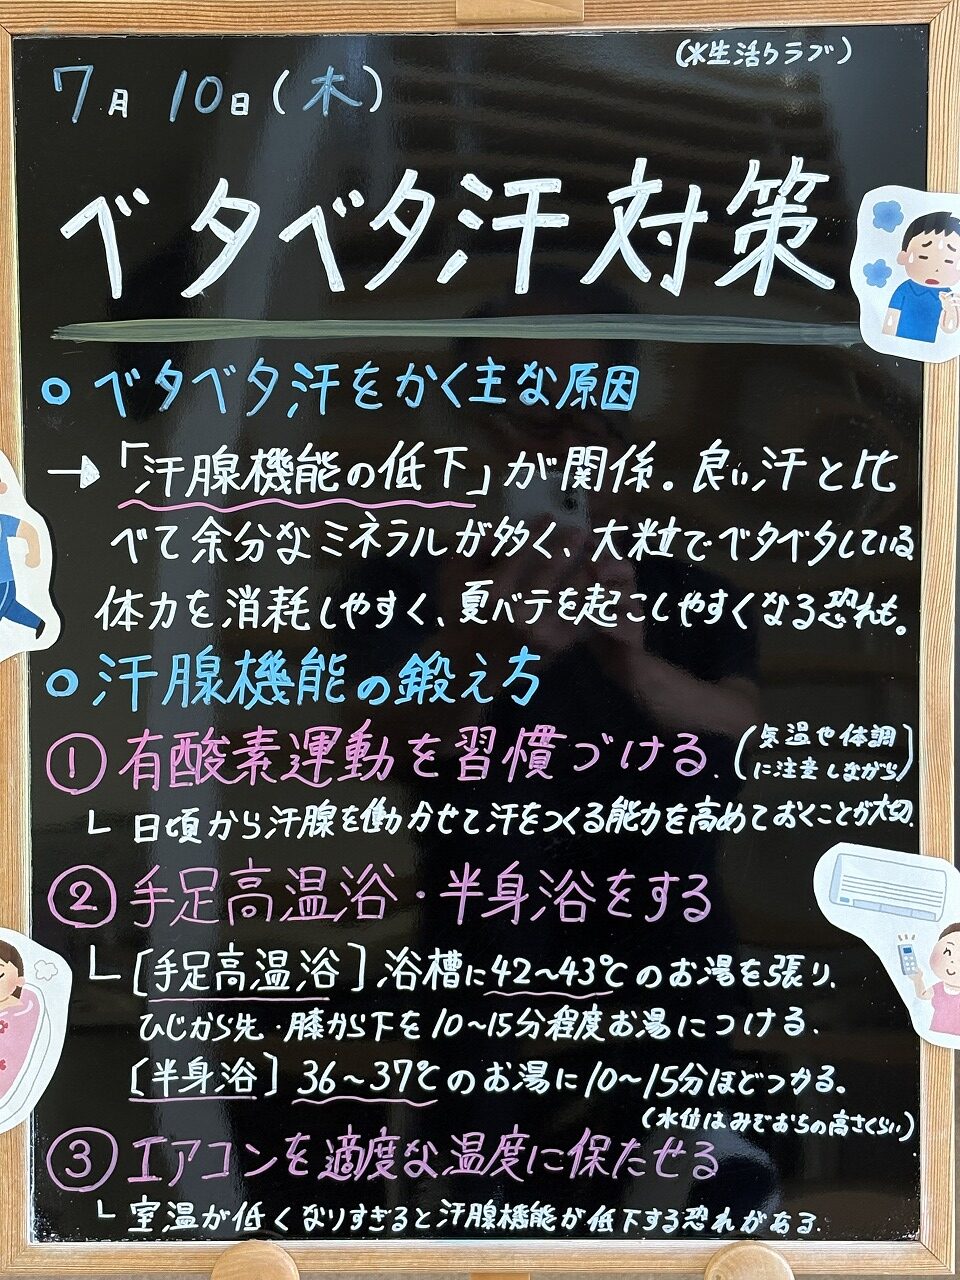 (水生活クラブ)
7月10日(木)
ベタベタ汗対策
○ベタベタ汗をかく主な原因
→「汗腺機能の低下」が関係。良い汗と比
べて余分なミネラルが多く、大粒でベタベタしている
体力を消耗しやすく、夏バテを起こしやすくなる恐れも。
○汗腺機能の鍛え方
①有酸素運動を習慣づける.(気温や体調
に注意しながら)
└日頃から汗腺を働かせて汗をつくる能力を高めておくことが大切.
②手足高温浴・半身浴をする
└[手足高温浴]浴槽に42~43℃のお湯を張り、
ひじから先・膝から下を10~15分程度お湯につける.
[半身浴]36~37℃のお湯に10~15分ほどつかる。
(水位はみぞおちの高さくらい)
③エアコンを適度な温度に保たせる
└室温が低くなりすぎると汗腺機能が低下する恐れがある.